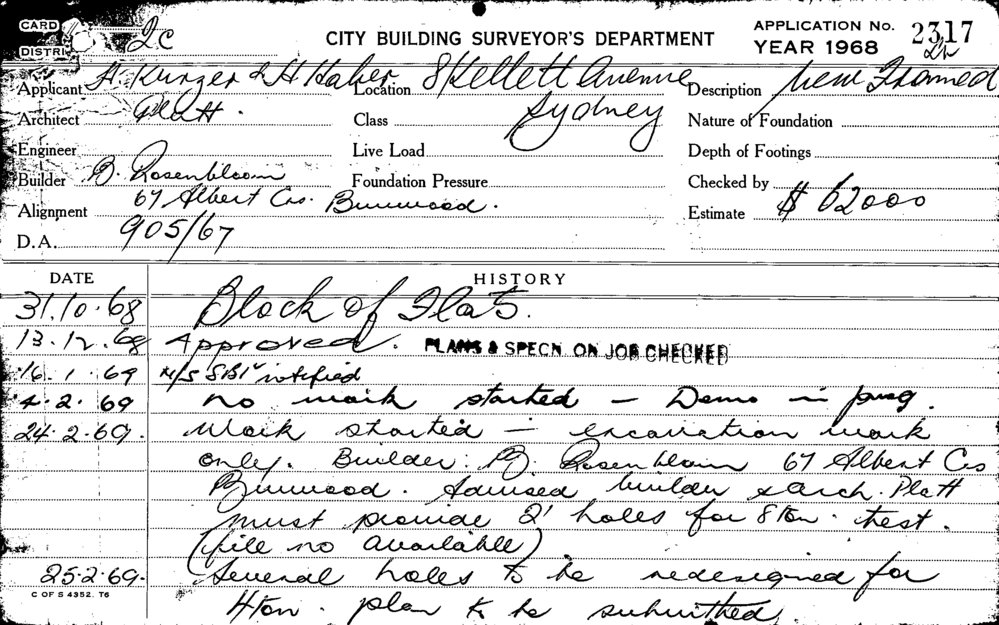 CARD
DISTRI 2C
CITY BUILDING SURVEYOR'S DEPARTMENT
APPLICATION No. 2317
YEAR 1968
Applicant H. Kurzer & H Haber Location 8 Kellett Avenue Description New Framed
Architect Platt. Class Sydney Nature of Foundation
Engineer Live Load Depth of Footings
Builder B. Rosenbloom Foundation Pressure Checked by
Alignment 67 Albert Cres. Burwood. Estimate $ 62000
D.A. 905/67
DATE HISTORY
31.10.68 Block of Flats.
13.12.68 Approved. PLANS & SPECN ON JOB CHECKED
16.1.69 notified
4.2.69 no work started — Demo in prog.
24.2.69. Work started — excavation work
only. Builder: B. Rosenbloom 67 Albert Cres
Burwood. Advised builder & arch. Platt
must provide 2' holes for 8 ton. test.
(file no available)
25.2.69. Several holes to be redesigned for
4 ton. plan to be submitted
C OF S 4352. T6